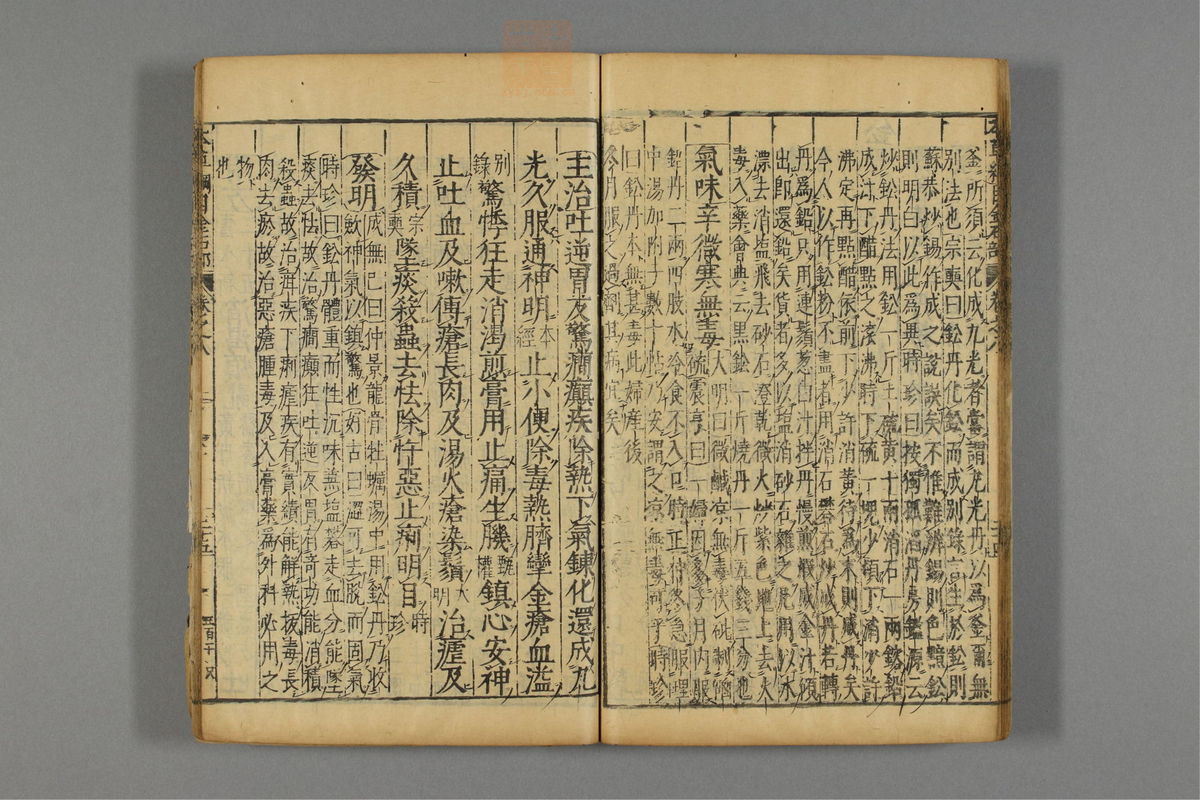 釜所須云化成九光者當謂九光丹以爲釜爾無
別法也宗奭曰鉛丹化鉛而成別錄言生於鉛則
蘇恭炒錫作成之說誤矣不惟難辨錫則色黯鉛
則明白以此爲異時珍曰按獨孤滔丹房鑑源云
炒鉛丹法用鉛一斤土硫黃十兩消石一兩鎔鉛
成汁下醋點之滾沸時下硫一塊少頃下消少許
沸定再點醋依前下少許消黃待爲末則成丹矣
今人以作鉛粉不盡者用消石礬石炒成丹若轉
丹爲鉛只用連鬚葱白汁拌丹慢煎煅成金汁傾
出卽還鉛矣貨者多以鹽消砂石雜之凡用以水
漂去消鹽飛去砂石澄乾微火炒紫色地上去火
毒入藥會典云黑鉛一斤燒丹一斤五錢三分也
氣味辛微寒無毒
大明曰微鹹凉無毒伏砒制硇
硫震亨曰一婦因多子月內服
鉛丹二兩四肢冰冷食不入口時正仲冬急服理
中湯加附子數十帖乃安謂之凉無毒可乎時珍
曰鉛丹本無甚毒此婦產後
冬月服之過劑其病宜矣
主治吐逆胃反驚癎癲疾除熱下氣鍊化還成九
光久服通神明
本經
止小便除毒熱臍攣金瘡血溢
別錄
驚悸狂走消渴煎膏用止痛生肌
甄權
鎮心安神
止吐血及嗽傅瘡長肉及湯火瘡染鬚
大明
治瘧及
久積
宗奭
墜痰殺蟲去怯除忤惡止痢明目
時珍
發明
成無已曰仲景龍骨牡蠣湯中用鉛丹乃收
斂神氣以鎮驚也好古曰澀可去脫而固氣
時珍曰鉛丹體重而性沉味兼鹽礬走血分能墜
痰去怯故治驚癎癲狂吐逆反胃有奇功能消積
殺蟲故治疳疾下痢瘧疾有實績能解熱拔毒長
肉去瘀故治惡瘡腫毒及入膏藥爲外科必用之
物也